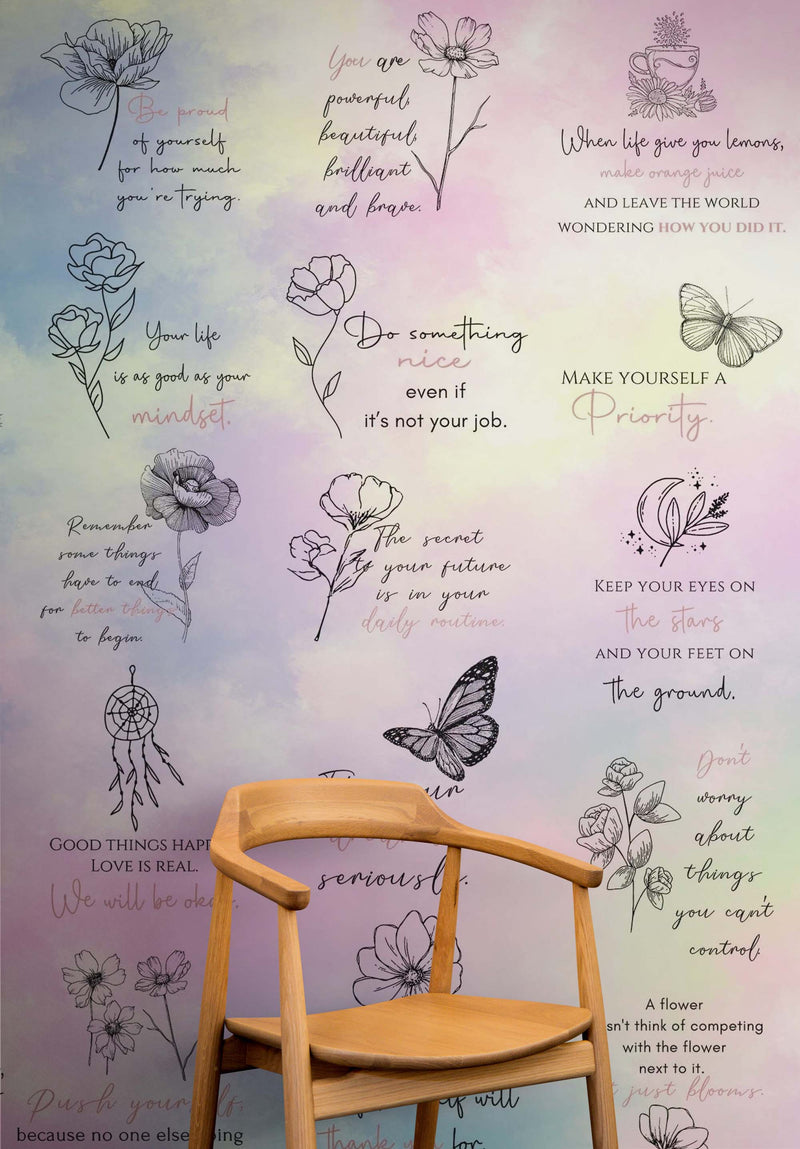 Be proud
of yourself
for how much
you're trying.
You are
powerful,
beautiful,
brilliant
and brave.
When life give you lemons,
make orange juice
AND LEAVE THE WORLD
WONDERING HOW YOU DID IT.
Your life
is as good as your
mindset.
Do something
nice
even if
it's not your job.
MAKE YOURSELF A
Priority.
Remember
some things
have to end
for better things
to begin.
The secret
to your future
is in your
daily routine.
KEEP YOUR EYES ON
the stars
AND YOUR FEET ON
the ground.
GOOD THINGS
LOVE IS REAL.
We will be
seriously.
Don't
worry
about
things
you can't
control.
A flower
think of competing
with the flower
next to it.
just blooms.
Push
because no one else
will
thank
for.